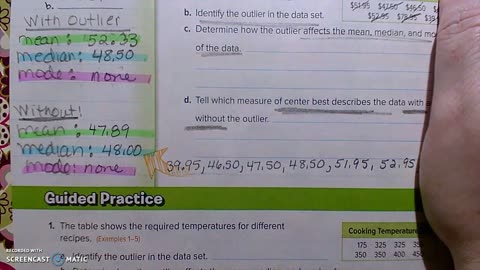 b.
With Outlier
mean: 52.33
median: 48.50
mode: none
Without!
mean: 47.89
median: 48.00
mode: none
$51.95 $47.50 $45.50
$52.95 $78.95 $39
b. Identify the outlier in the data set.
c. Determine how the outlier affects the mean, median, and mo
of the data.
d. Tell which measure of center best describes the data with
without the outlier.
39.95, 46.50, 47.50, 48.50, 51.95, 52.95
Guided Practice
1. The table shows the required temperatures for different
recipes. (Examples 1–5)
a. Identify the outlier in the data set.
Cooking Temperature
175 325 325 35
350 350 400 45
RECORDED WITH
SCREENCAST MATIC